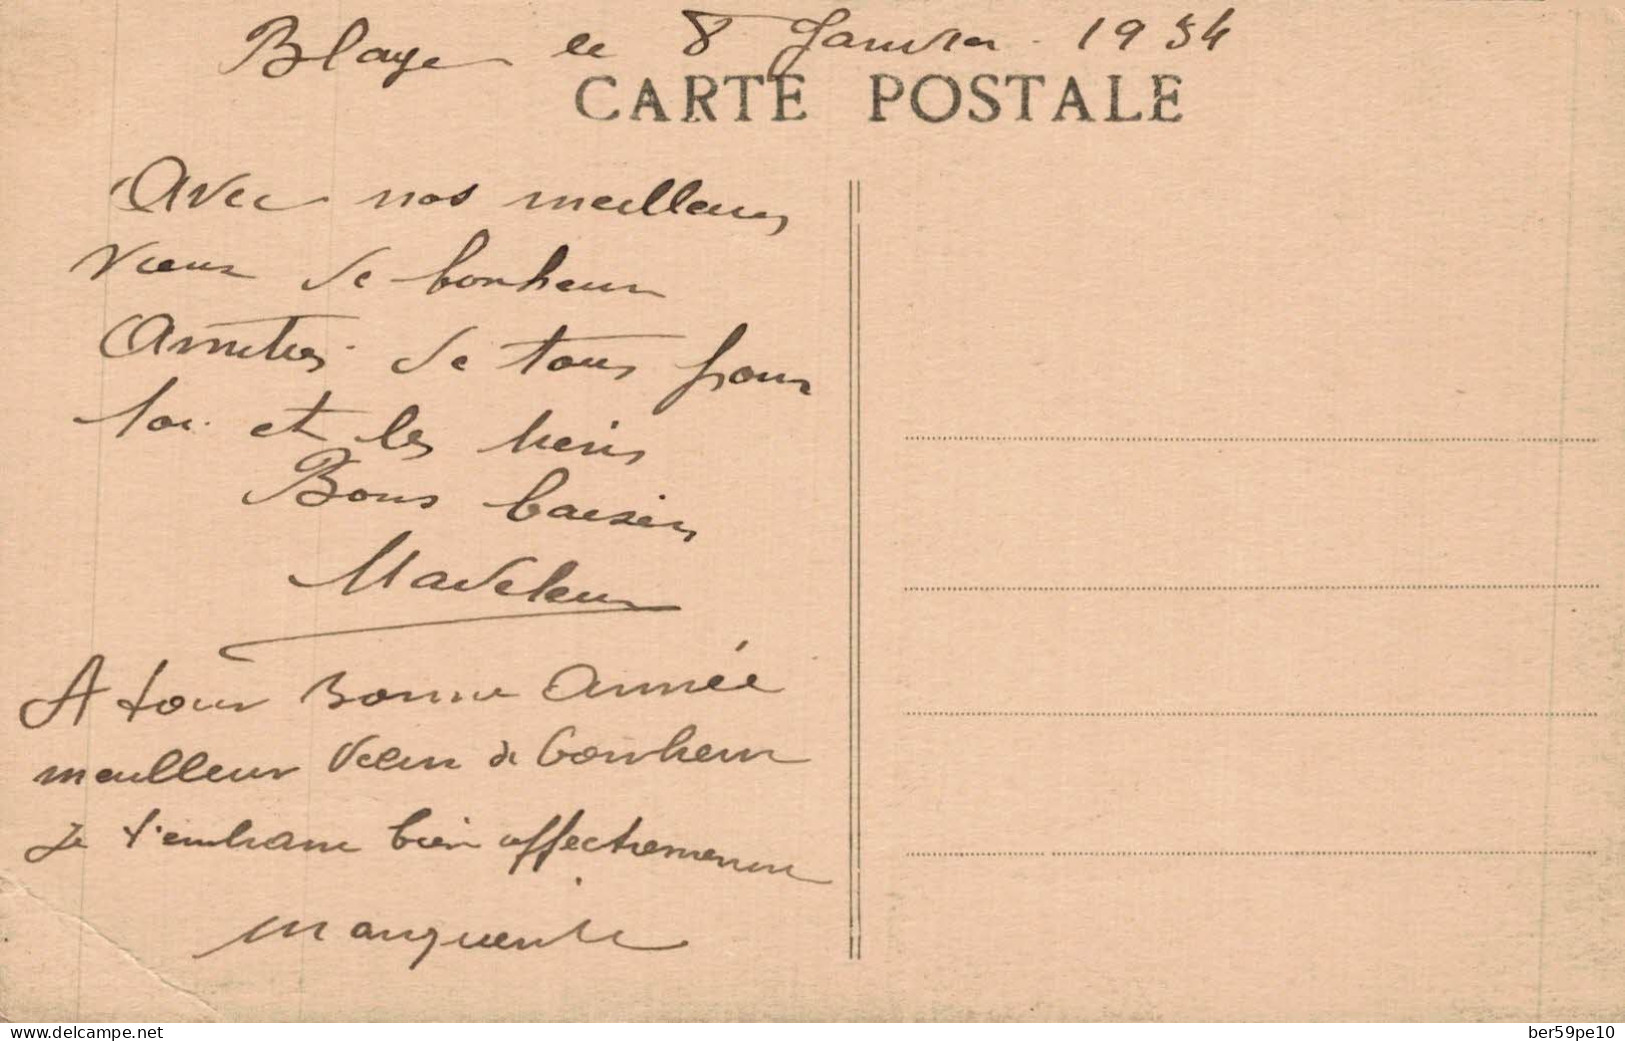 Blaye le 8 Janvier 1934
CARTE POSTALE
Avec nos meilleurs
vœux de bonheur
Amitiés de tous pour
toi et les tiens
Bons baisers
Madeleine
A tous Bonne Année
meilleur vœux de bonheur
Je t'embrasse bien affectueusement
Marguerite
www.delcampe.net
ber59pe10